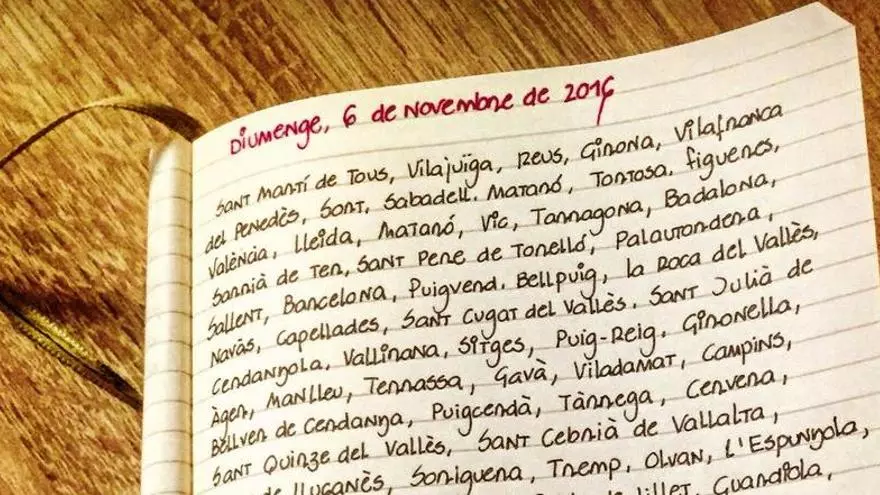 Diumenge, 6 de novembre de 2016
Sant Martí de Tous, Vilajuïga, Reus, Girona, Vilafranca
del Penedès, Sort, Sabadell, Mataró, Tortosa, Figueres,
València, Lleida, Mataró, Vic, Tarragona, Badalona,
Sarrià de Ter, Sant Pere de Torelló, Palautordera,
Sallent, Barcelona, Puigverd, Bellpuig, la Roca del Vallès,
Navàs, Capellades, Sant Cugat del Vallès, Sant Julià de
Cerdanyola, Vallirana, Sitges, Puig-Reig, Gironella,
Àger, Manlleu, Terrassa, Gavà, Viladamat, Campins,
Bellver de Cerdanya, Puigcerdà, Tàrrega, Cervera,
Sant Quirze del Vallès, Sant Cebrià de Vallalta,
de Lluçanès, Soriguera, Tremp, Olvan, l'Espunyola,
de Lillet, Guardiola,